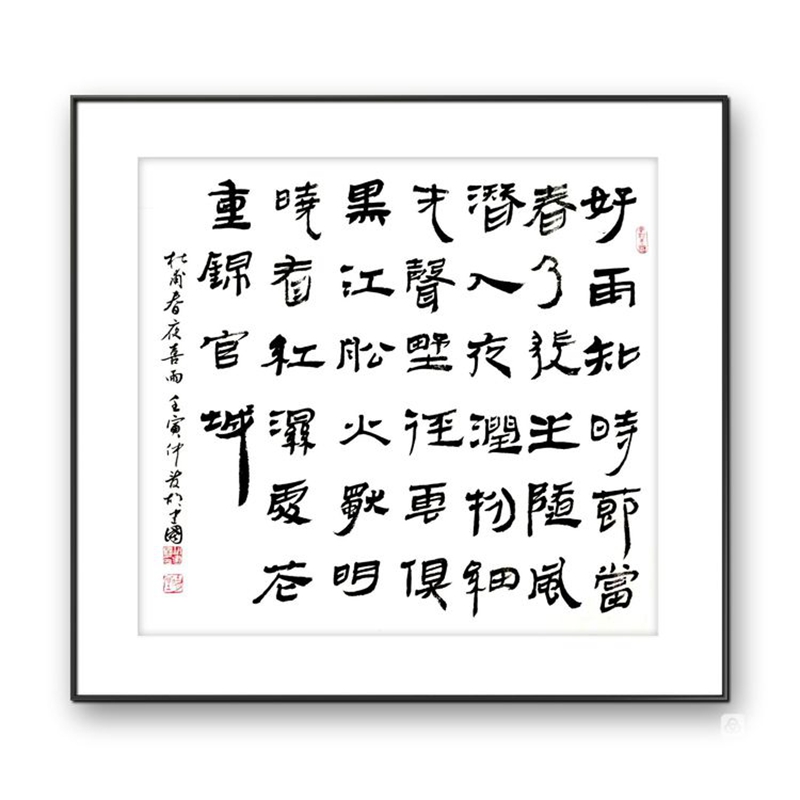 好雨知時節當
春乃發生隨風
潛入夜潤物細
无聲野徑雲俱
黑江船火獨明
曉看紅濕處花
重錦官城
杜甫春夜喜雨 壬寅仲於中國